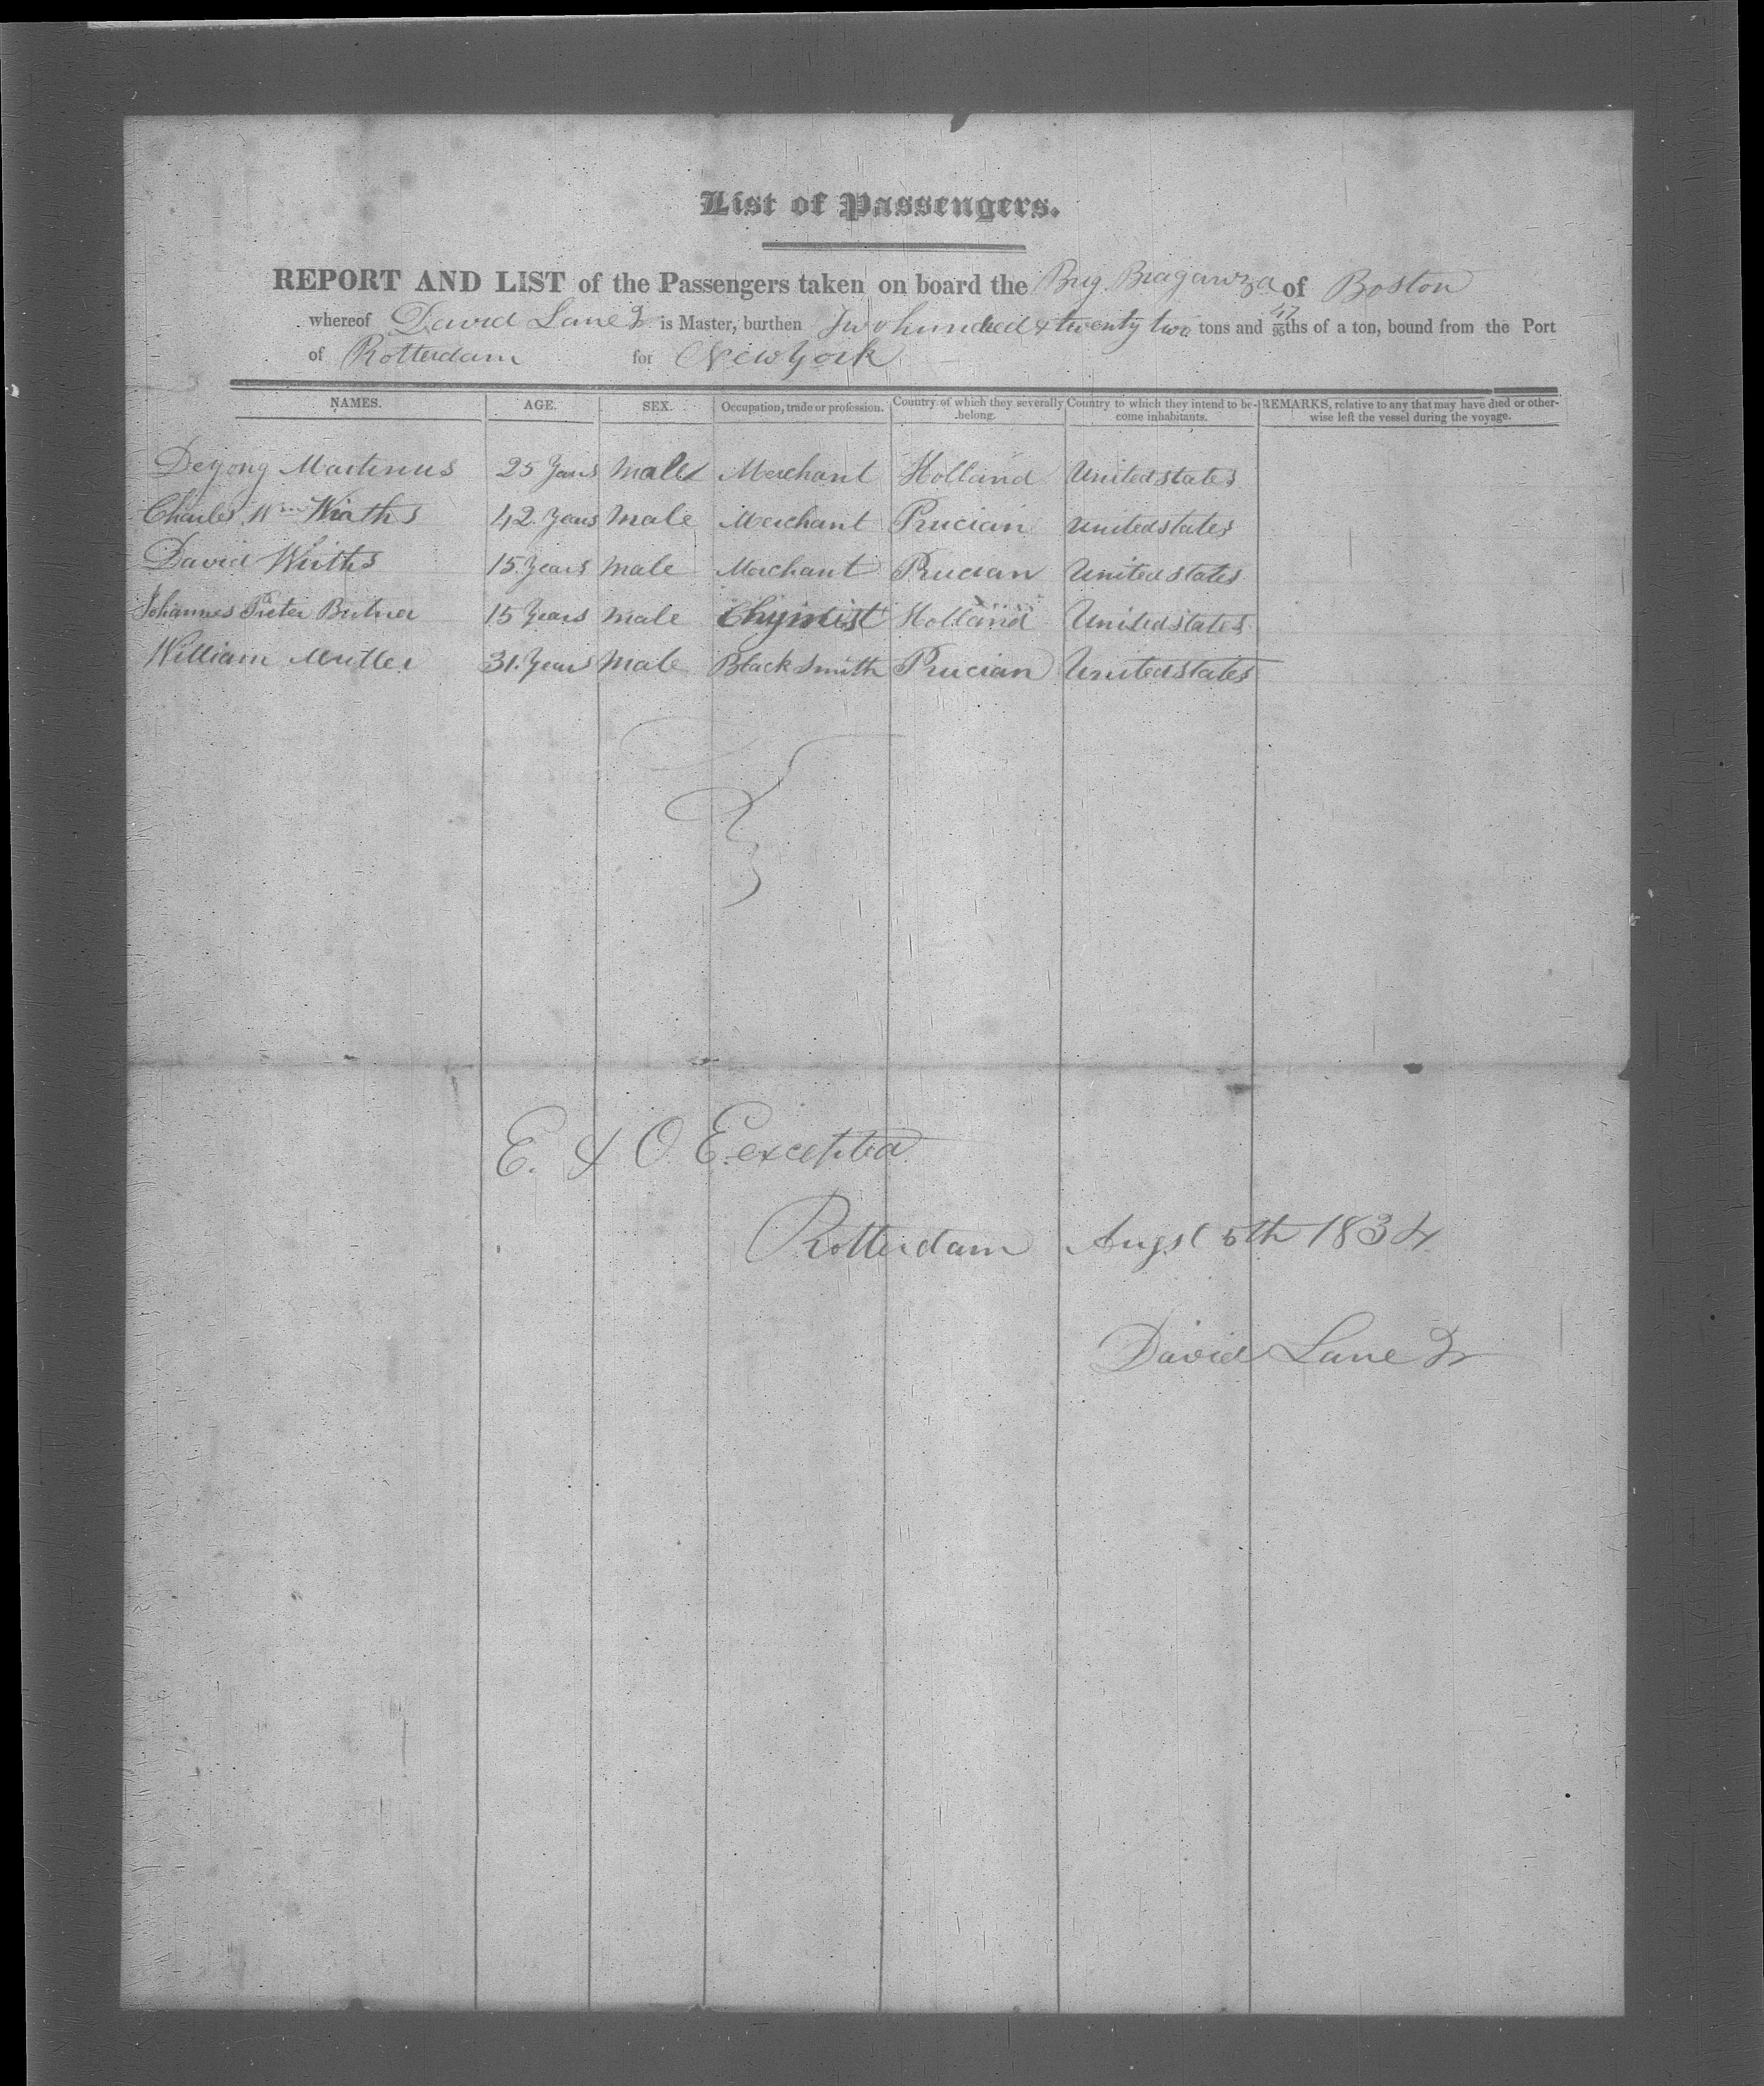 List of Passengers.
REPORT AND LIST of the Passengers taken on board the Brig Braganza of Boston
whereof David Lane Jr is Master, burthen Two hundred & twenty two tons and 47/95ths of a ton, bound from the Port
of Rotterdam for New York
NAMES. AGE. SEX. Occupation, trade or profession. Country of which they severally belong. Country to which they intend to become inhabitants. REMARKS, relative to any that may have died or otherwise left the vessel during the voyage.
Deyong Martinus 25 Years Male Merchant Holland United states
Charles Wm Wirths 42 Years Male Merchant Prucian United states
David Wirths 15 Years Male Merchant Prucian United states
Johannes Pieter 15 Years Male Chymist Holland United states
William Muller 31 Years Male Black Smith Prucian United states
E. & O. Eexcepted
Rotterdam Augst 5th 1834
David Lane Jr